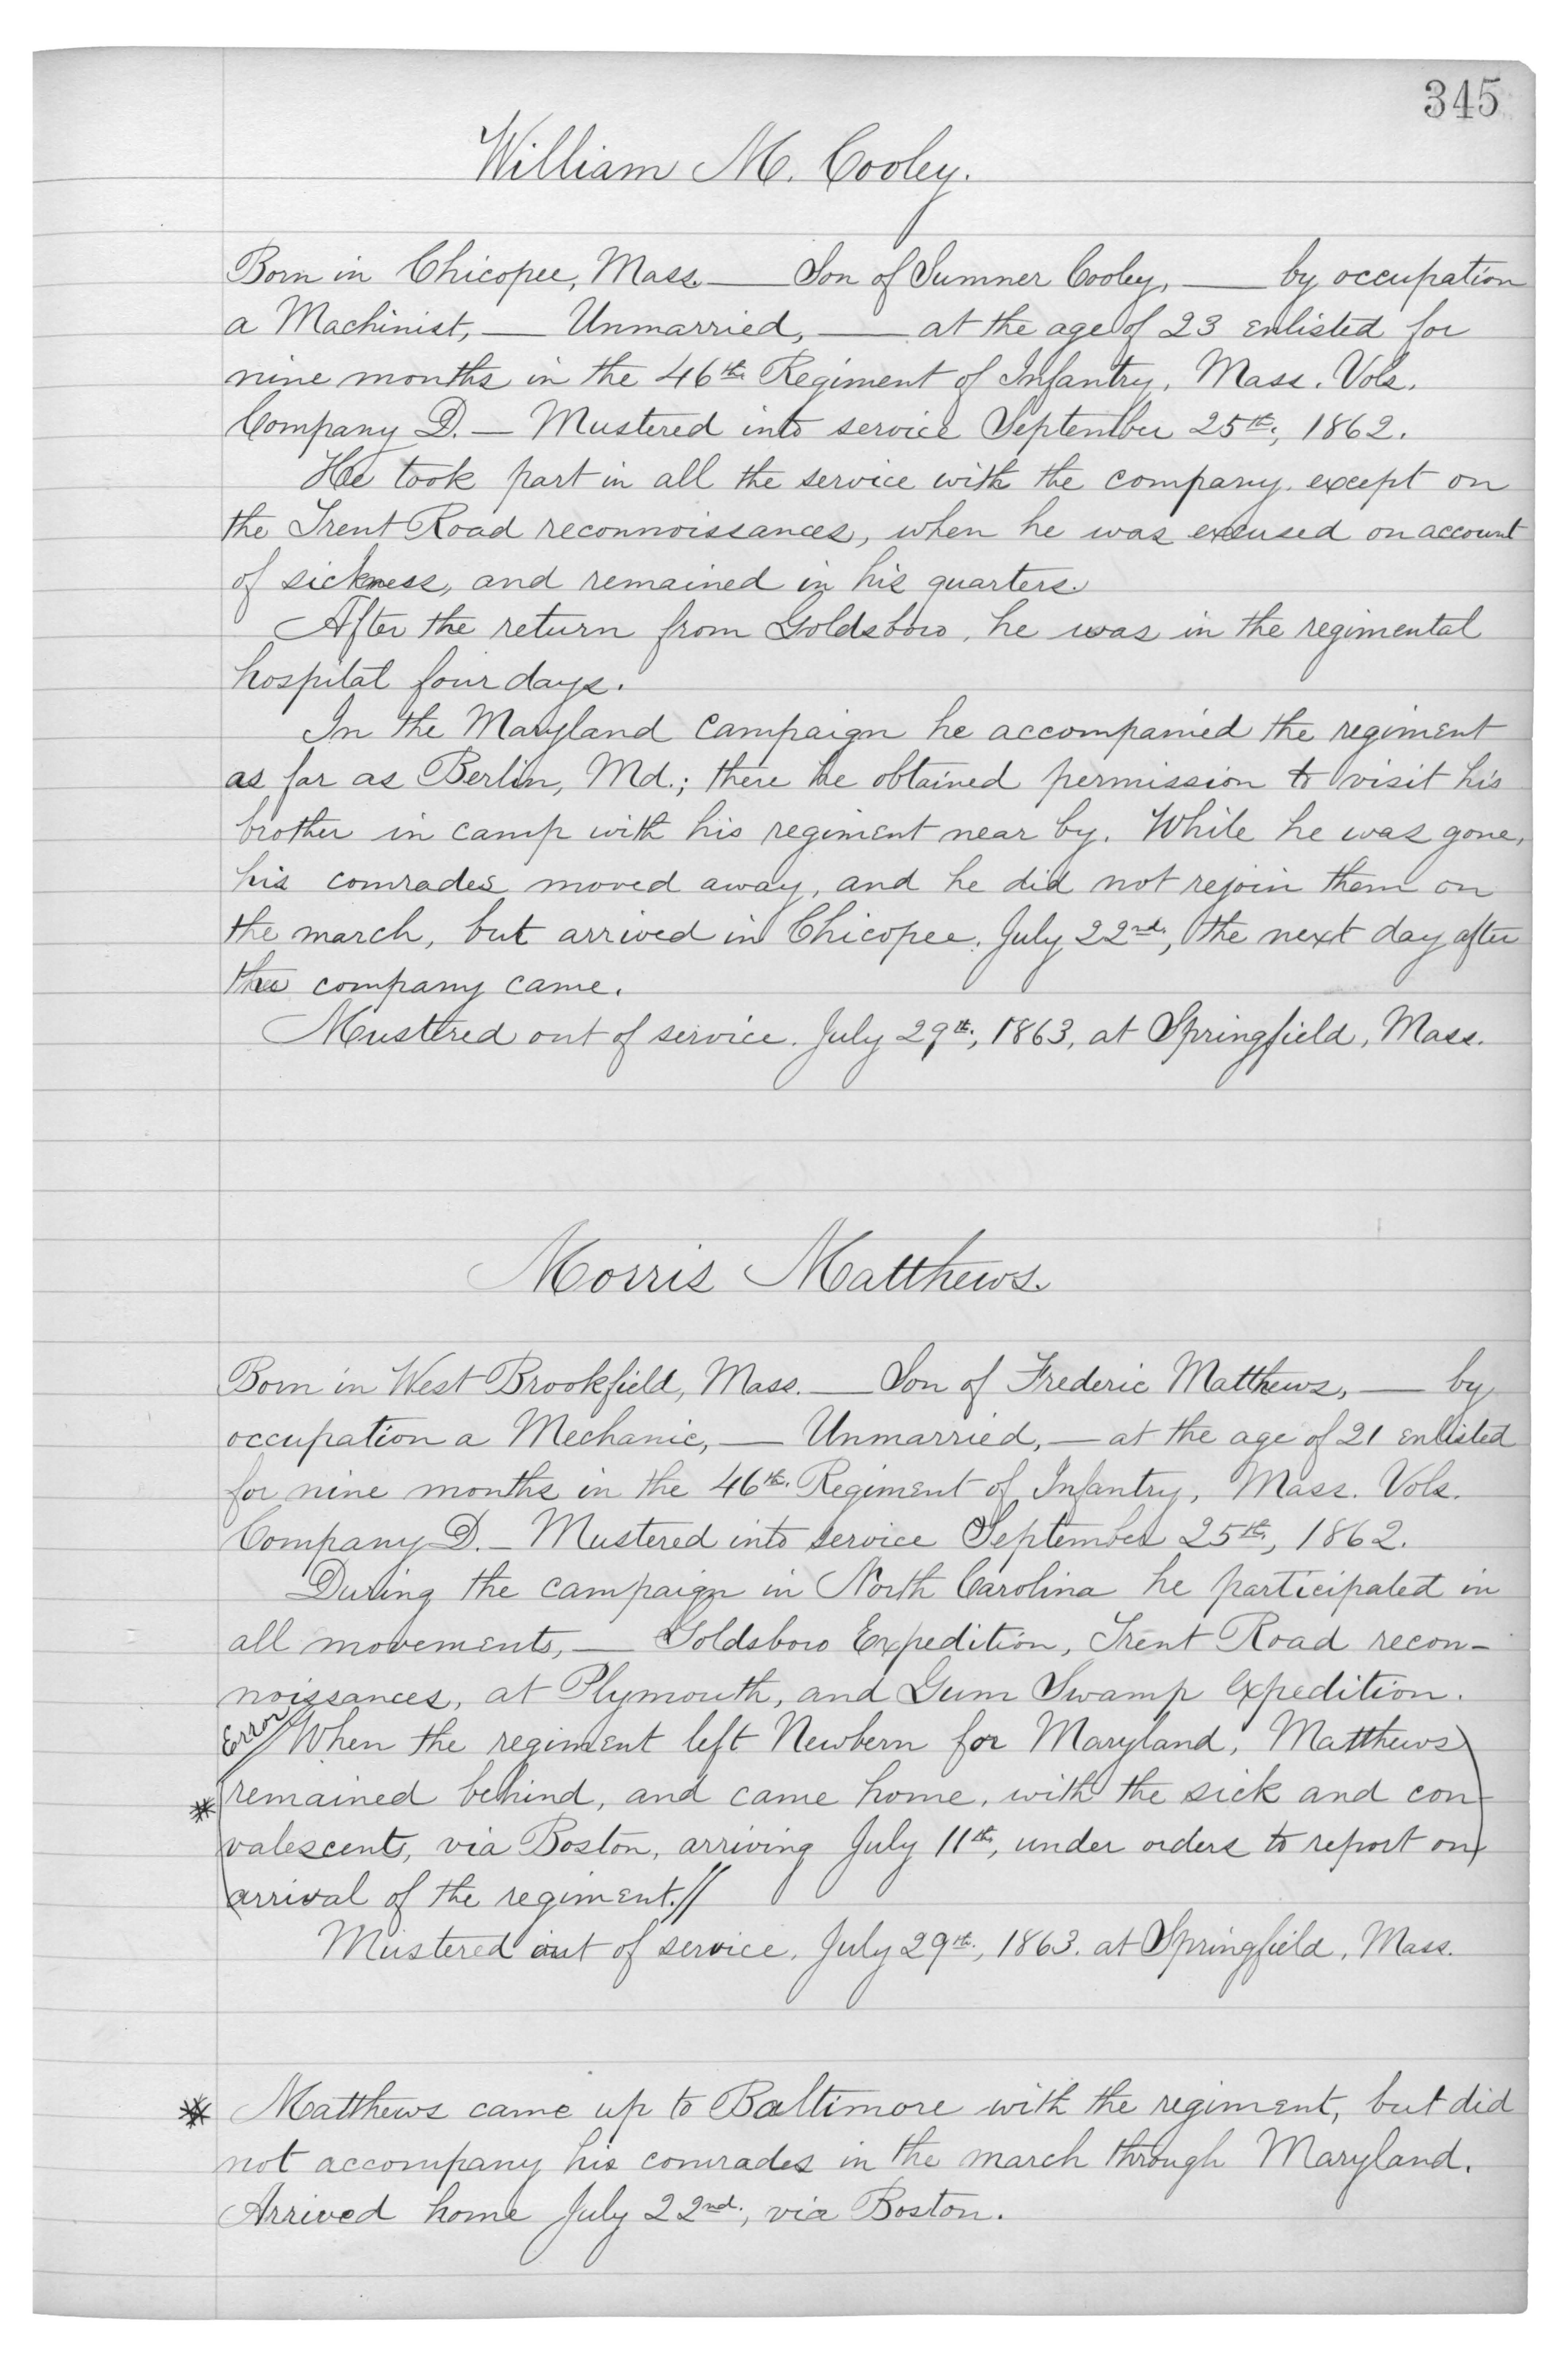 345
William M. Cooley.
Born in Chicopee, Mass. — Son of Sumner Cooley, — by occupation
a Machinist, — Unmarried, — at the age of 23 enlisted for
nine months in the 46th Regiment of Infantry, Mass. Vols.
Company D. — Mustered into service September 25th, 1862.
He took part in all the service with the company, except on
the Trent Road reconnoissances, when he was excused on account
of sickness, and remained in his quarters.
After the return from Goldsboro, he was in the regimental
hospital four days.
In the Maryland Campaign he accompanied the regiment
as far as Berlin, Md.; there he obtained permission to visit his
brother in camp with his regiment near by. While he was gone,
his comrades moved away, and he did not rejoin them on
the march, but arrived in Chicopee, July 22nd, the next day after
the company came.
Mustered out of service, July 29th, 1863, at Springfield, Mass.
Morris Matthews.
Born in West Brookfield, Mass. — Son of Frederic Matthews, — by
occupation a Mechanic, — Unmarried, — at the age of 21 enlisted
for nine months in the 46th Regiment of Infantry, Mass. Vols.
Company D. — Mustered into service September 25th, 1862.
During the campaign in North Carolina he participated in
all movements, — Goldsboro Expedition, Trent Road recon-
noissances, at Plymouth, and Gum Swamp Expedition.
Error // When the regiment left Newbern for Maryland, Matthews
* remained behind, and came home, with the sick and con-
valescents, via Boston, arriving July 11th, under orders to report on
arrival of the regiment. //
Mustered out of service, July 29th, 1863. at Springfield, Mass.
* Matthews came up to Baltimore with the regiment, but did
not accompany his comrades in the march through Maryland.
Arrived home July 22nd, via Boston.